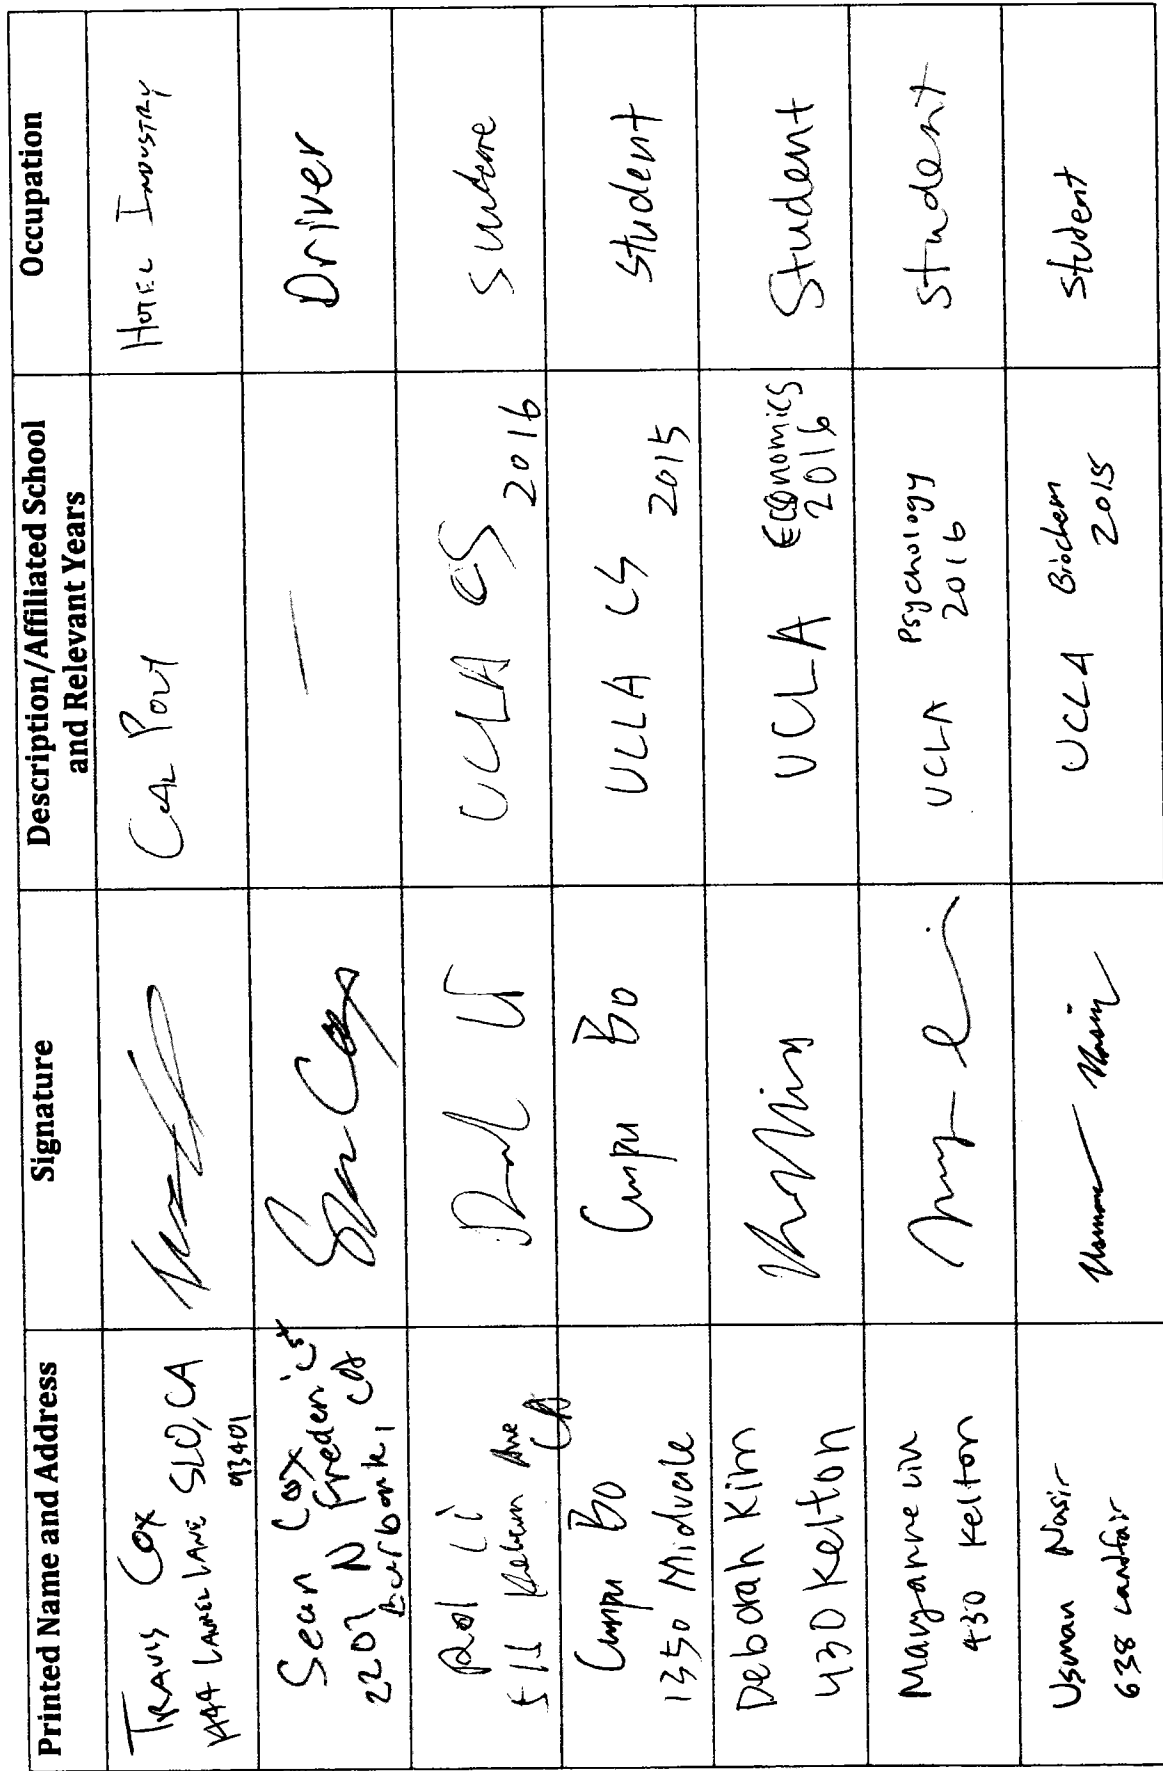 Printed Name and Address
Signature
Description/Affiliated School
and Relevant Years
Occupation
TRAVIS COX
1444 LAUREL LANE SLO, CA
93401
CAL POLY
HOTEL INDUSTRY
Sean Cox
2203 N Frederic St
Burbank, CA
Sean Cox
—
Driver
Li
511 Ave
CA
UCLA CS
2016
Bo
1350 Midvale
Bo
ULLA CS
2015
Student
Deborah Kim
430 Kelton
UCLA Economics
2016
Student
Maryanne Liu
430 Kelton
UCLA Psychology
2016
Student
Usman Nasir
638 Landfair
Usman Nasir
UCLA Biochem
2015
Student